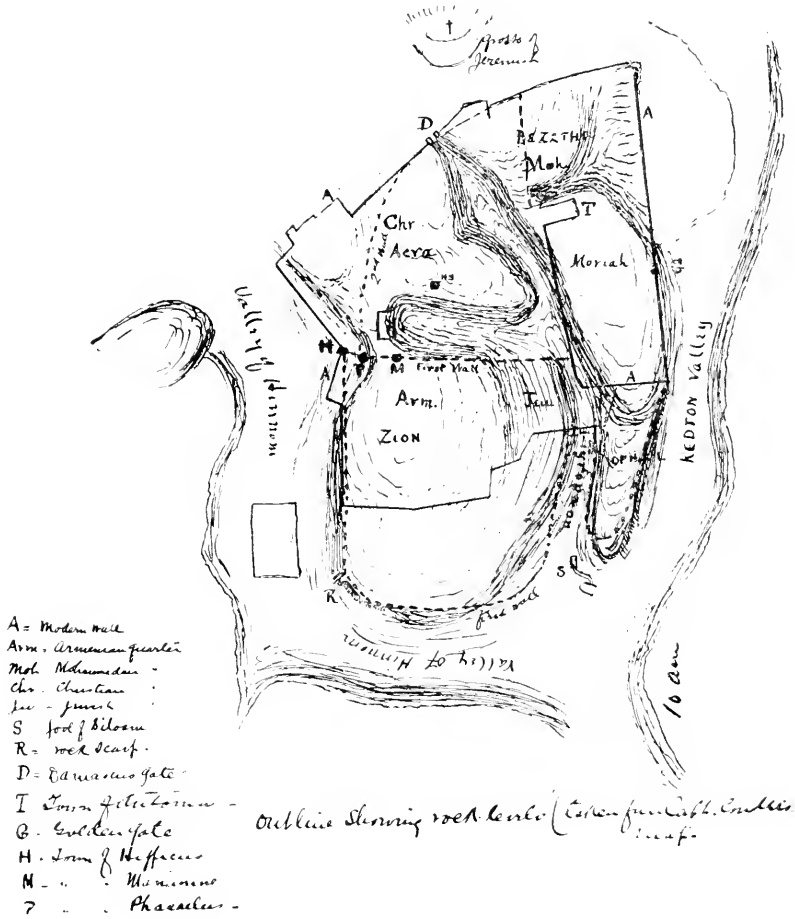 Grotto of
Jeremiah
D
A
BEZETHA
Moh.
A
T
Chr
Acra
2 Wall
Moriah
HS
G
Valley of Hinnom
KEDRON Valley
H
P
M First Wall
A
A
Arm.
Jew
ZION
OPHEL
Tyropoeon
S
R
first wall
Valley of Hinnom
A = Modern wall
Arm. Armenian quarter
Moh Mohammedan "
Chr. Christian "
Jew - Jewish "
S Pool of Siloam
R = rock scarp.
D = Damascus gate
T Town of Antonia
G. Golden gate
H. Town of Hippicus
M - " " Mariamne
P " " Phasaelus
Outline Showing rock levels (taken from Capt. Conders
map.